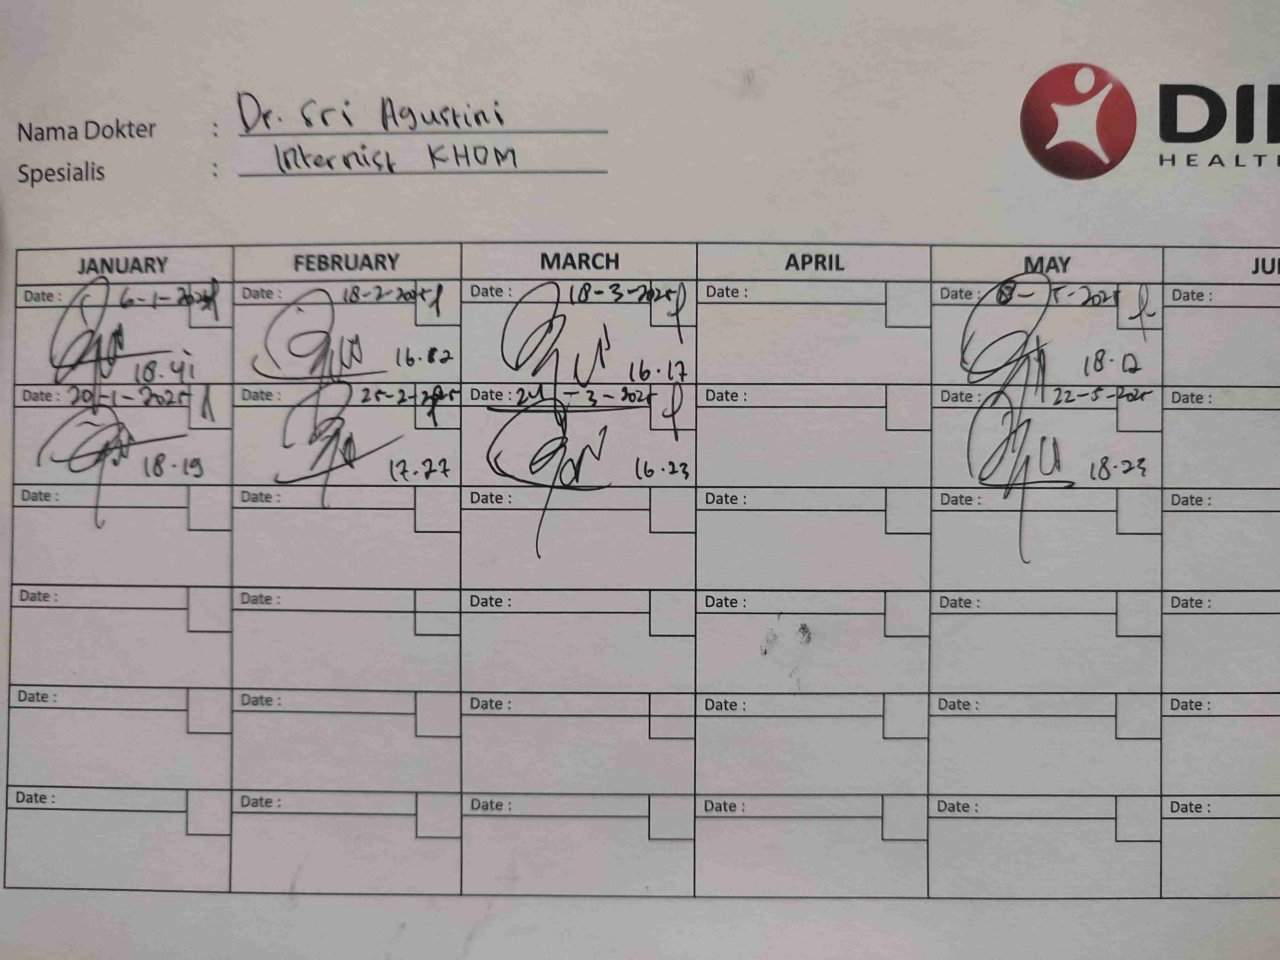 Nama Dokter : Dr. Sri Agustini
Spesialis : Internist KHOM
DI
HEALT
JANUARY FEBRUARY MARCH APRIL MAY JU
Date : 6-1-2025 Date : 18-2-2025 Date : 18-3-2025 Date : Date : 8-5-2025 Date :
18.41 16.02 16.17 18.12
Date : 20-1-2025 Date : 25-2-2025 Date : 24-3-2025 Date : Date : 22-5-2025 Date :
18.19 17.27 16.23 18.23
Date : Date : Date : Date : Date : Date :
Date : Date : Date : Date : Date : Date :
Date : Date : Date : Date : Date : Date :
Date : Date : Date : Date : Date : Date :